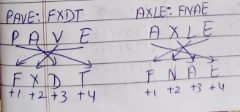 PAVE: FXDT AXLE: FNAE
P A V E A X L E
F X D T F N A E
+1 +2 +3 +4 +1 +2 +3 +4